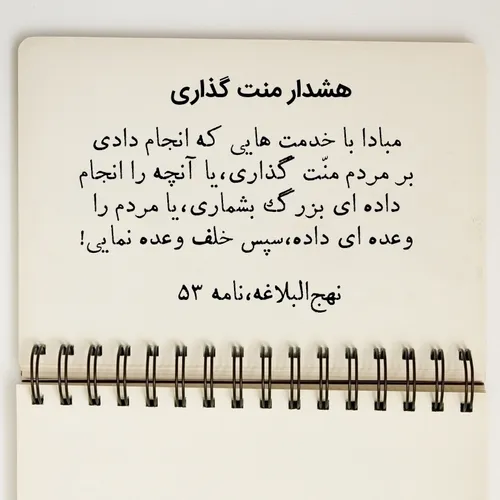 هشدار منت گذاری
مبادا با خدمت هایی که انجام دادی
بر مردم منّت گذاری،یا آنچه را انجام
داده ای بزرگ بشماری،یا مردم را
وعده ای داده،سپس خلف وعده نمایی!
نهج‌البلاغه،نامه ۵۳